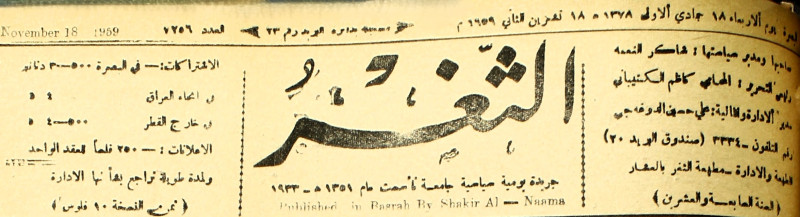 البصرة يوم الاربعاء ١٨ جمادي الأولى ١٣٧٨ ه ١٨ تشرين الثاني ١٩٥٩ م
العدد ٧٢٥٦
November 18 1959
صاحبها ومدير سياستها : شاكر النعمه
رئيس التحرير : المحامي كاظم
مدير الادارة والمالية : علي حسين
رقم التلفون – ٣٣٣٤ (صندوق البريد ٢٠)
الطبعة والادارة – مطبعة الثغر بالعشار
(السنة السابعة والعشرين)
الثَّغر
جريدة يومية سياسية جامعة تأسست عام ١٣٥١ ه – ١٩٣٣
Published in Basrah By Shakir Al – Naama
الاشتراكات :– في البصرة ٥٠٠–٣ دنانير
في انحاء العراق
في خارج القطر ٥٠٠–٤
الاعلانات :– ٢٥٠ فلساً للعقد الواحد
ولمدة طويلة تراجع بشأنها الادارة
(ثمن النسخة ١٠ فلوس)